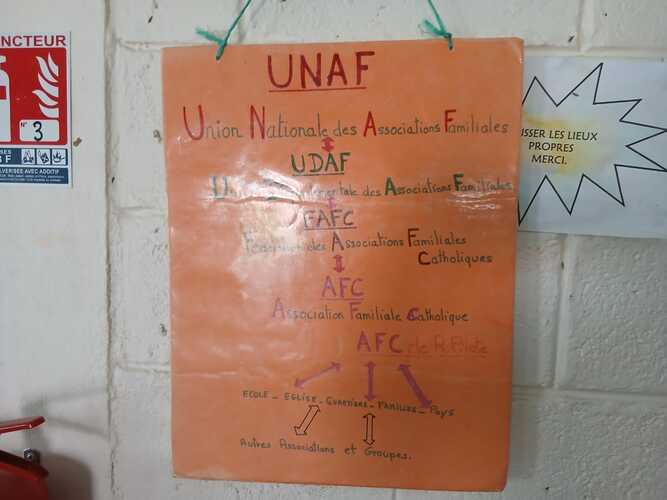 NCTEUR
N° 3
UNAF
Union Nationale des Associations Familiales
UDAF
des Associations Familiales
FAFC
des Associations Familiales
Catholiques
AFC
Association Familiale Catholique
AFC de R. Pilote
ECOLE - EGLISE - QUARTIERS - FAMILLES - PAYS
Autres Associations et Groupes.
ISSER LES LIEUX
PROPRES
MERCI.